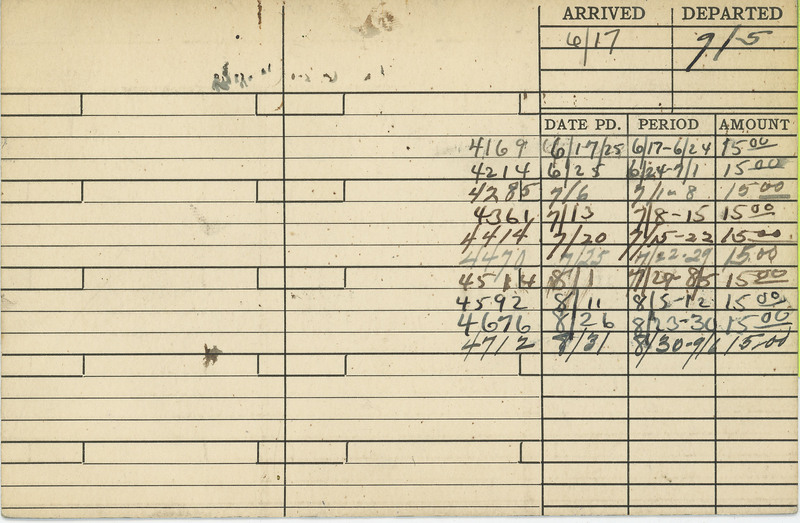 ARRIVED DEPARTED
6/17 9/-5
DATE PD. PERIOD AMOUNT
4169 6/17/25 6/17-6/24 15 00
4214 6/25 6/24-7/1 15 00
4285 7/6 7/1-8 15 00
4361 7/13 7/8-15 15 00
4414 7/20 7/15-22 15 00
4470 7/25 7/22-29 15 00
4514 8/1 7/29-8/5 15 00
4592 8/11 8/5-12 15 00
4676 8/26 8/23-30 15 00
4712 8/31 8/30-9/6 15 00